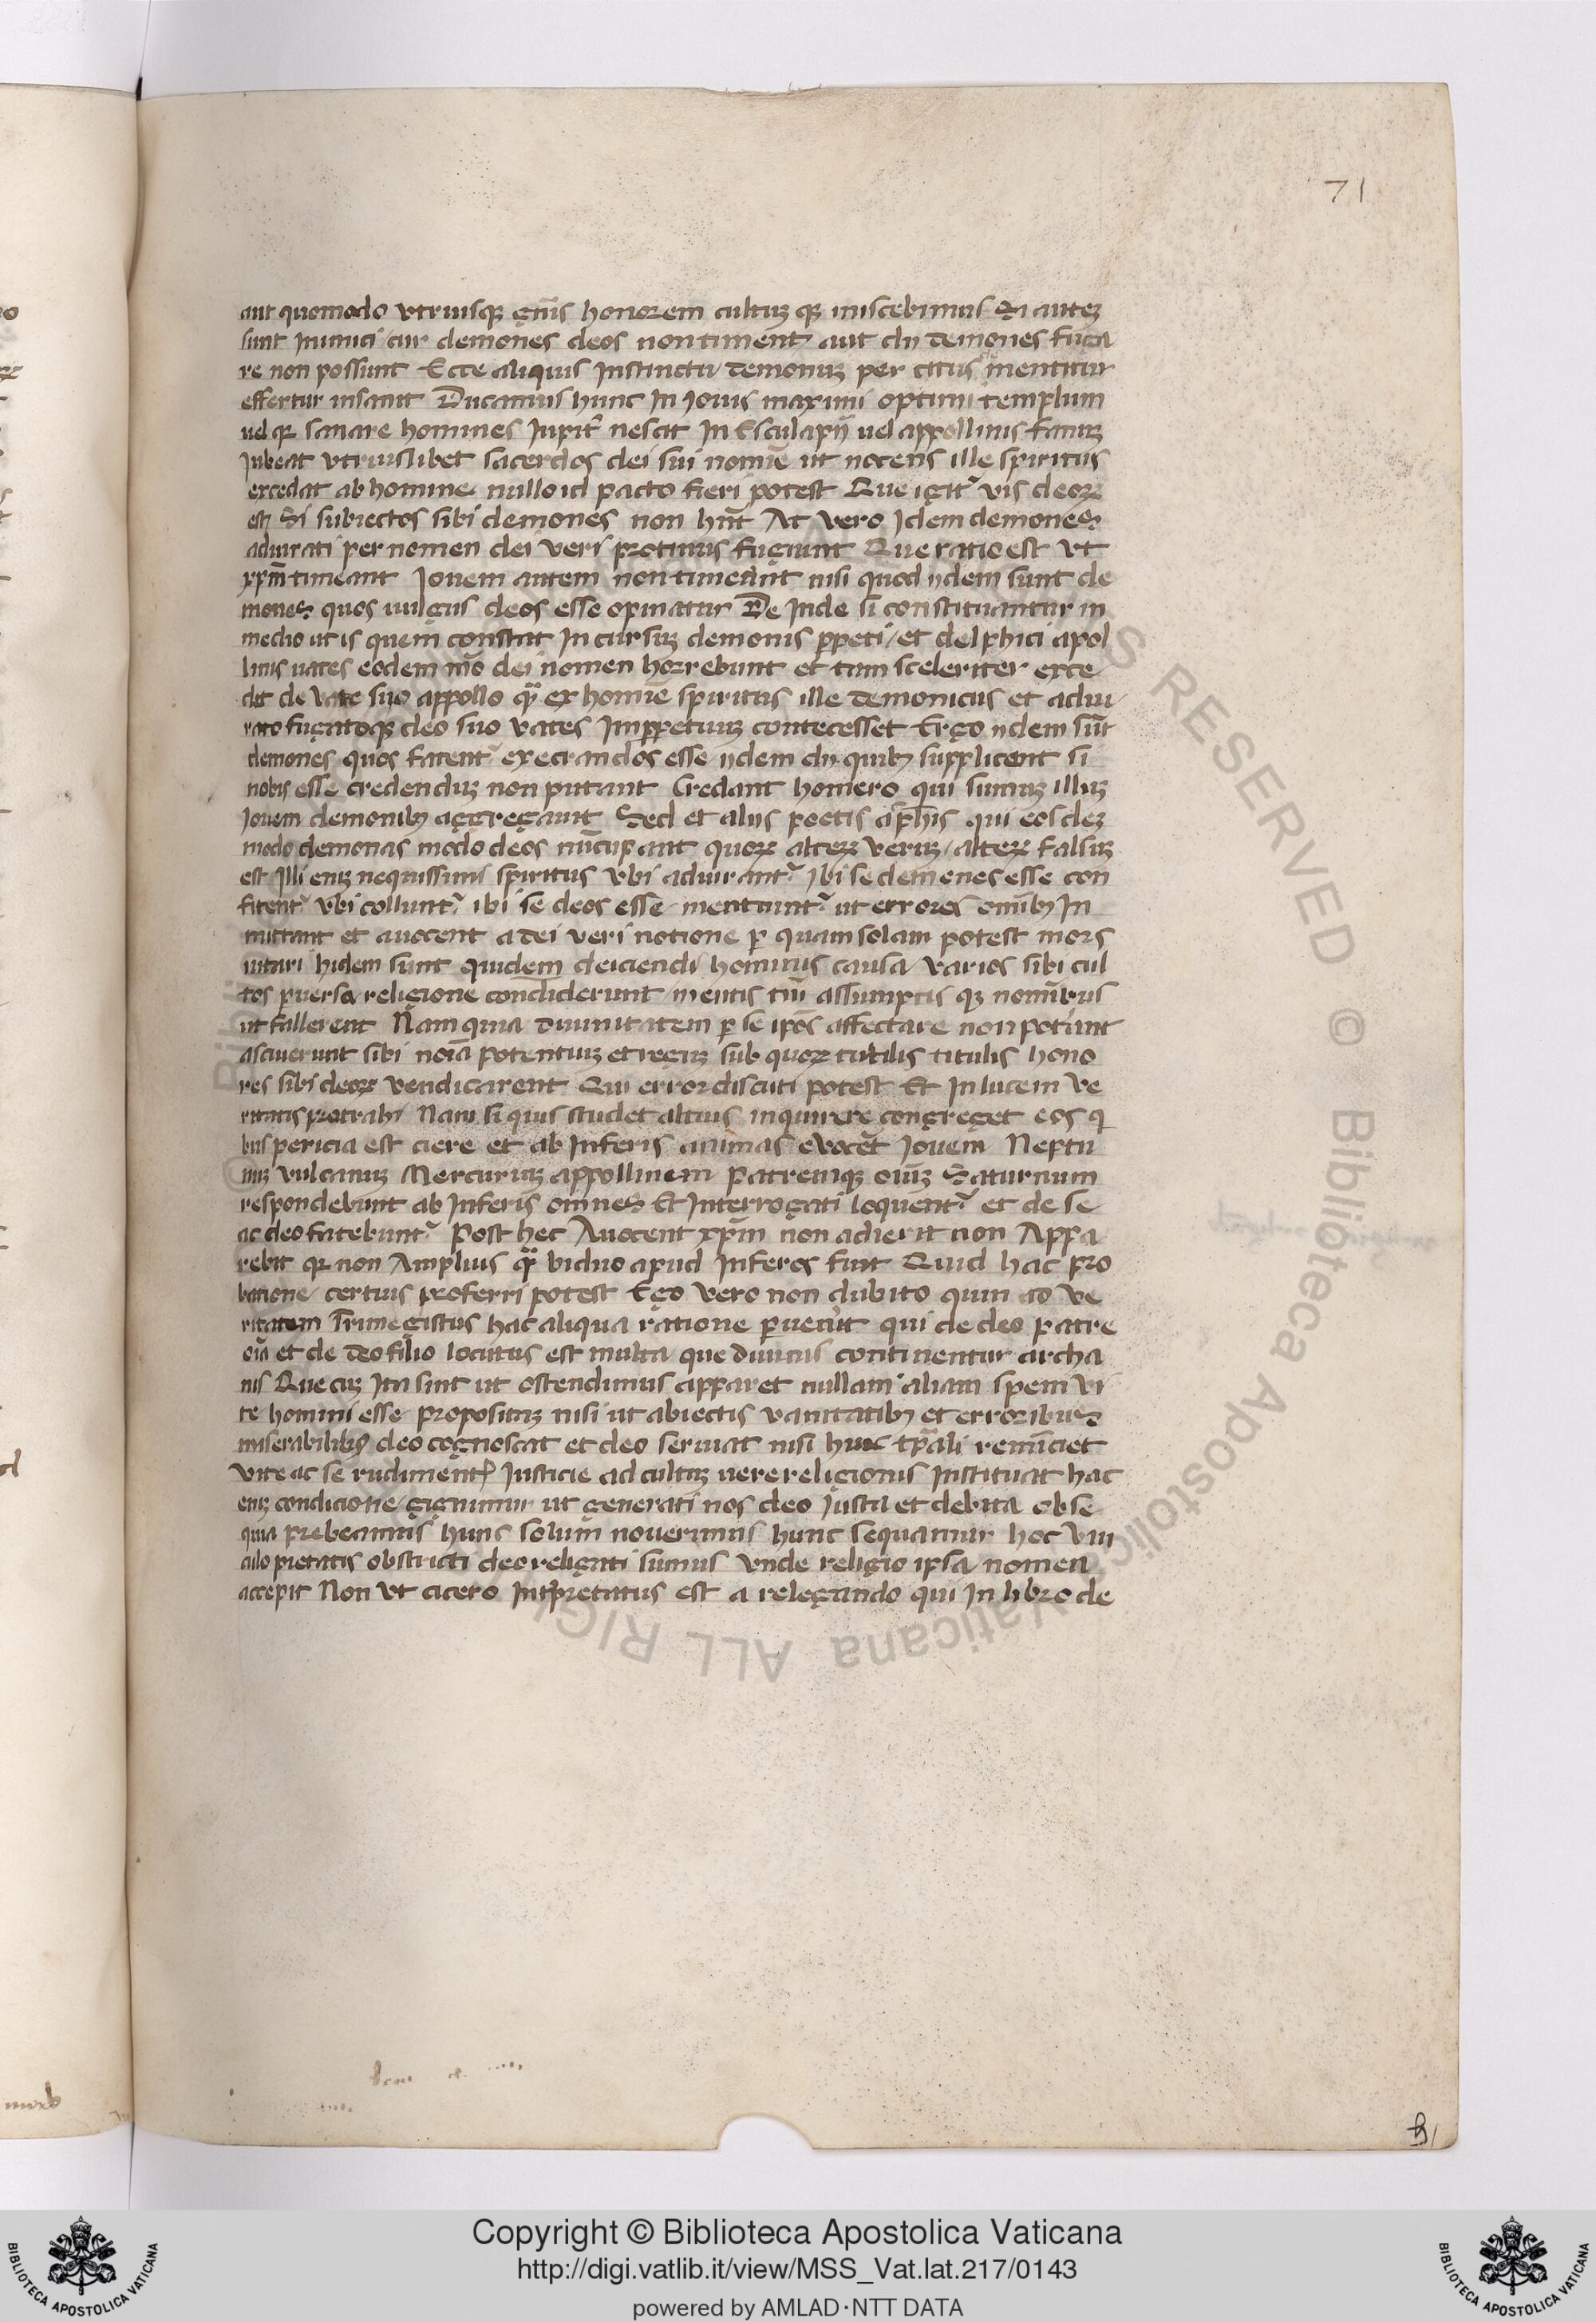 71
aut quomodo vtriusqꝫ gn̄is honorem cultuꝫ qꝫ miscebimus Si auteꝫ
sunt Inimici cur demones deos non timent aut dij demones fuga
re non possunt Ecce aliquis Instinctu demonuꝫ per citus mentitur
effertur insanit Ducamus hunc In Jouis maximi optimi templum
uel qꝛ sanare homines Iupit᷑ nescit In Esculapij uel appollinis fanuꝫ
Jubeat vtriuslibet sacerdos dei sui nomīe ut nocens ille spiritus
excedat ab homine nullo id pacto fieri potest Que igit᷑ vis deoꝝ
est Si subiectos sibi demones non hn̄t At vero Idem demones
adiurati per nomen dei veri protinus fugiunt Que ratio est vt
xp̄m timeant Iouem autem non timeant nisi quod ijdem sunt de
mones quos uulgus deos esse opinatur De Inde si constituantur in
medio ut is quem constat Incursuꝫ demonis ꝑpeti et delphici apol
linis uates eodem mō dei nomen horrebunt et tam sceleriter exce
det de vate suo appollo qͣ̄ ex homīe spiritus ille demonicus et adiu
rato fugatoqꝫ deo suo vates Imꝑpetuuꝫ contecesset Ergo ijdem sūt
demones quos fatent᷑ execrandos esse ijdem dij quibꝫ supplicent si
nobis esse credenduꝫ non putant Credant homero qui summuꝫ illuꝫ
Jouem demonibꝫ aggregauit Sed et alijs poetis a ph̄is qui eos deꝫ
modo demonas modo deos nūcupant quoꝝ alteꝝ veruꝫ alteꝝ falsuꝫ
est Illi eniꝫ nequissimi spiritus vbi adiurant᷑ Ibi se demenes esse con
fitent᷑ vbi collunt᷑ ibi se deos esse mentiunt᷑ ut errores omībꝫ In
mittant et auocent a dei veri notione ꝑ quam solam potest mors
uitari hidem sunt quidem deiciendi hominis causa varios sibi cul
tos ꝑuersa religione condiderunt mentis tn̄ assumptis qꝫ nomībus
ut fallerent Nam quia diuinitatem ꝑ se ip̄os affectare non pot᷑ant
asciuerunt sibi noīa potentiuꝫ et reguꝫ sub quoꝝ titulis titulis hono
res sibi deoꝝ vendicarent Qui error discuti potest Et In lucem ve
ritatis protrahi Nam si quis studet altius inquirere congreget eos q
bus pericia est ciere et ab Inferis animas evocēt Iouem Neptu
nuꝫ vulcanuꝫ Mercuriuꝫ appollinem Patremqꝫ oīuꝫ Saturnum
respondebunt ab Inferis omnes Et Interrogati loquent᷑ et de se
ac deo fatebunt᷑ Post hec Auocent xp̄m non adierit non Appa
rebit qꝛ non Amplius qͣ̄ biduo apud Inferos fuit Quid hac pro
batione certius proferri potest Ego vero non dubito quin ad ve
ritatem Trimegistus hac aliqua ratione ꝑuen᷑it qui de deo patre
oīa et de deo filio locutus est multa que diuinis continentur archa
nis Que cuꝫ Ita sint ut ostendimus apparet nullam aliam spem vi
te homini esse propositaꝫ nisi ut abiectis vanitatibꝫ et erroribus
miserabilibꝫ deo cognoscat et deo seruiat nisi huic tp̄ali renūciet
vite ac se rudiment̄ Iusticie ad cultuꝫ uere religionis Instituat hac
eniꝫ condicione gignimur ut generati nos deo Iusta et debita obse
quia prebeamus hunc solum nouerimus hunc sequamur hoc vin
culo pietatis obstricti deo religati sumus vnde religio ipsa nomen
accepit Non vt cicero Int̄pretatus est a relegando qui In libro de
Copyright © Biblioteca Apostolica Vaticana
http://digi.vatlib.it/view/MSS_Vat.lat.217/0143
powered by AMLAD·NTT DATA